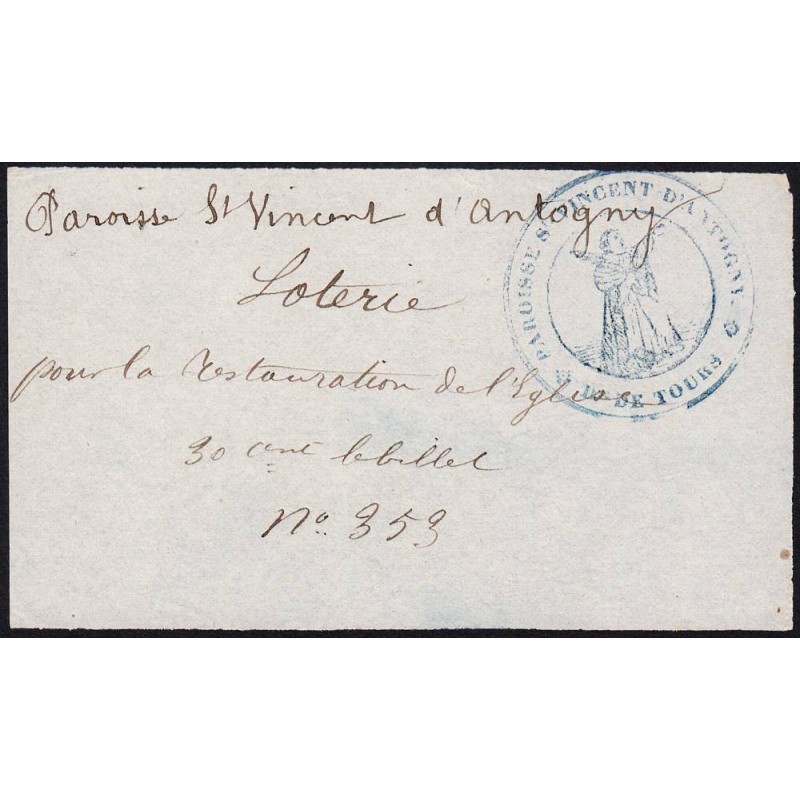 Paroisse St Vincent d'Antogny
Loterie
pour la restauration de l'Eglise
30 cent le billet
No. 353
PAROISSE St VINCENT D'ANTOGNY
Dse DE TOURS